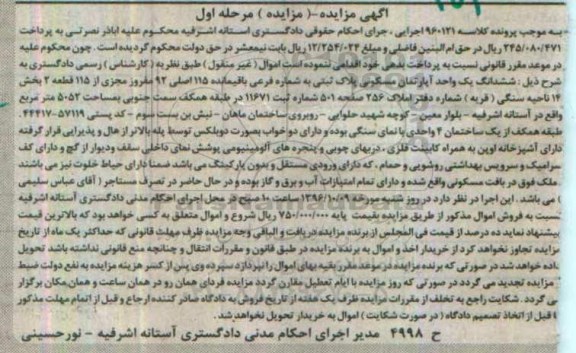 آگهی مزایده-( مزایده ) مرحله اول
به موجب پرونده کلاسه ۹۶۰۱۲۱ اجرایی ، جرای احکام حقوقی دادگستری آستانه اشرفیه محکوم علیه اباذر نصرتی به پرداخت
۲۴۵/۰۸۰/۴۷۱ ریال در حق ام البنین فاضلی و مبلغ ۱۲/۲۵۴/۰۲۴ ریال بابت نیمعشر در حق دولت محکوم گردیده است . چون محکوم علیه
در موعد مقرر قانونی نسبت به پرداخت بدهی خود اقدامی ننموده است اموال ( غیر منقول ) طبق نظریه ( کارشناس ) رسمی دادگستری به
شرح ذیل : ششدانگ یک واحد آپارتمان مسکونی پلاک ثبتی به شماره فرعی باقیمانده ۱۱۵ اصلی ۹۲ مفروز مجزی از ۱۱۵ قطعه ۲ بخش
۱۴ ناحیه سنگی ( قریه ) شماره دفتر املاک ۲۵۶ صفحه ۵۰۱ شماره ثبت ۱۱۶۷۱ در طبقه همکف سمت جنوبی بمساحت ۵۰۵۲ متر مربع
واقع در آستانه اشرفیه - بلوار معین - کوچه شهید حلوایی - روبروی ساختمان ماهان - نبش بن بست سوم - کد پستی ۵۷۱۱۹-۴۴۴۱۷
طبقه همکف از یک ساختمان ۴ واحدی با نمای سنگی بوده و دارای دو خواب بصورت دوبلکس توسط پله بالاتر از هال و پذیرایی قرار گرفته
دارای آشپزخانه اوپن به همراه کابینت فلزی ، دربهای چوبی و پنجره های آلومینیومی پوشش نمای داخلی سقف ودیوار از گچ و دارای کف
سرامیک و سرویس بهداشتی روشویی و حمام ، که دارای ورودی مستقل و بدون پارکینگ می باشد ضمنا دارای حیاط خلوت نیز می باشند
ملک فوق در بافت مسکونی واقع شده و دارای تمام امتیازات آب و برق و گاز بوده و در حال حاضر در تصرف مستاجر ( آقای عباس سلیمی
) می باشد . این اجرا در نظر دارد در روز شنبه مورخ ساعت ۱۰ صبح در محل اجرای احکام مدنی دادگستری آستانه اشرفیه
نسبت به فروش اموال مذکور از طریق مزایده بقیمت پایه ۷۵۰/۰۰۰/۰۰۰ ریال شروع و اموال متعلق به کسی خواهد بود که بالاترین قیمت
پیشنهاد نماید ده درصد از قیمت فی المجلس از برنده مزایده دریافت و الباقی وجه مزایده ظرف مهلت قانونی که حداکثر یک ماه از تاریخ
مزایده تجاوز نخواهد کرد از خریدار اخذ و اموال به برنده مزایده در طبق قانون و مقررات انتقال و چنانچه منع قانونی نداشته باشد تحویل
داده خواهد شد در صورتی که برنده مزایده در موعد مقرر بقیه بهای اموال را نپردازد سپرده وی پس از کسر هزینه مزایده به نفع دولت ضبط
مزایده تجدید می گردد در صورتی که روز مزایده با ایام تعطیل مقارن گردد مزایده فردای همان روز در همان ساعت و همان مکان برگزار
ی گردد . شکایت راجع به تخلف از مقررات مزایده ظرف یک هفته از تاریخ فروش به دادگاه صادر کننده ارجاع و قبل از اتمام مهلت مذکور
ا قبل از اتخاذ تصمیم دادگاه ( در صورت شکایت ) اموال به خریدار تحویل نخواهد شد .
ح ۴۹۹۸ مدیر اجرای احکام مدنی دادگستری آستانه اشرفیه - نورحسینی